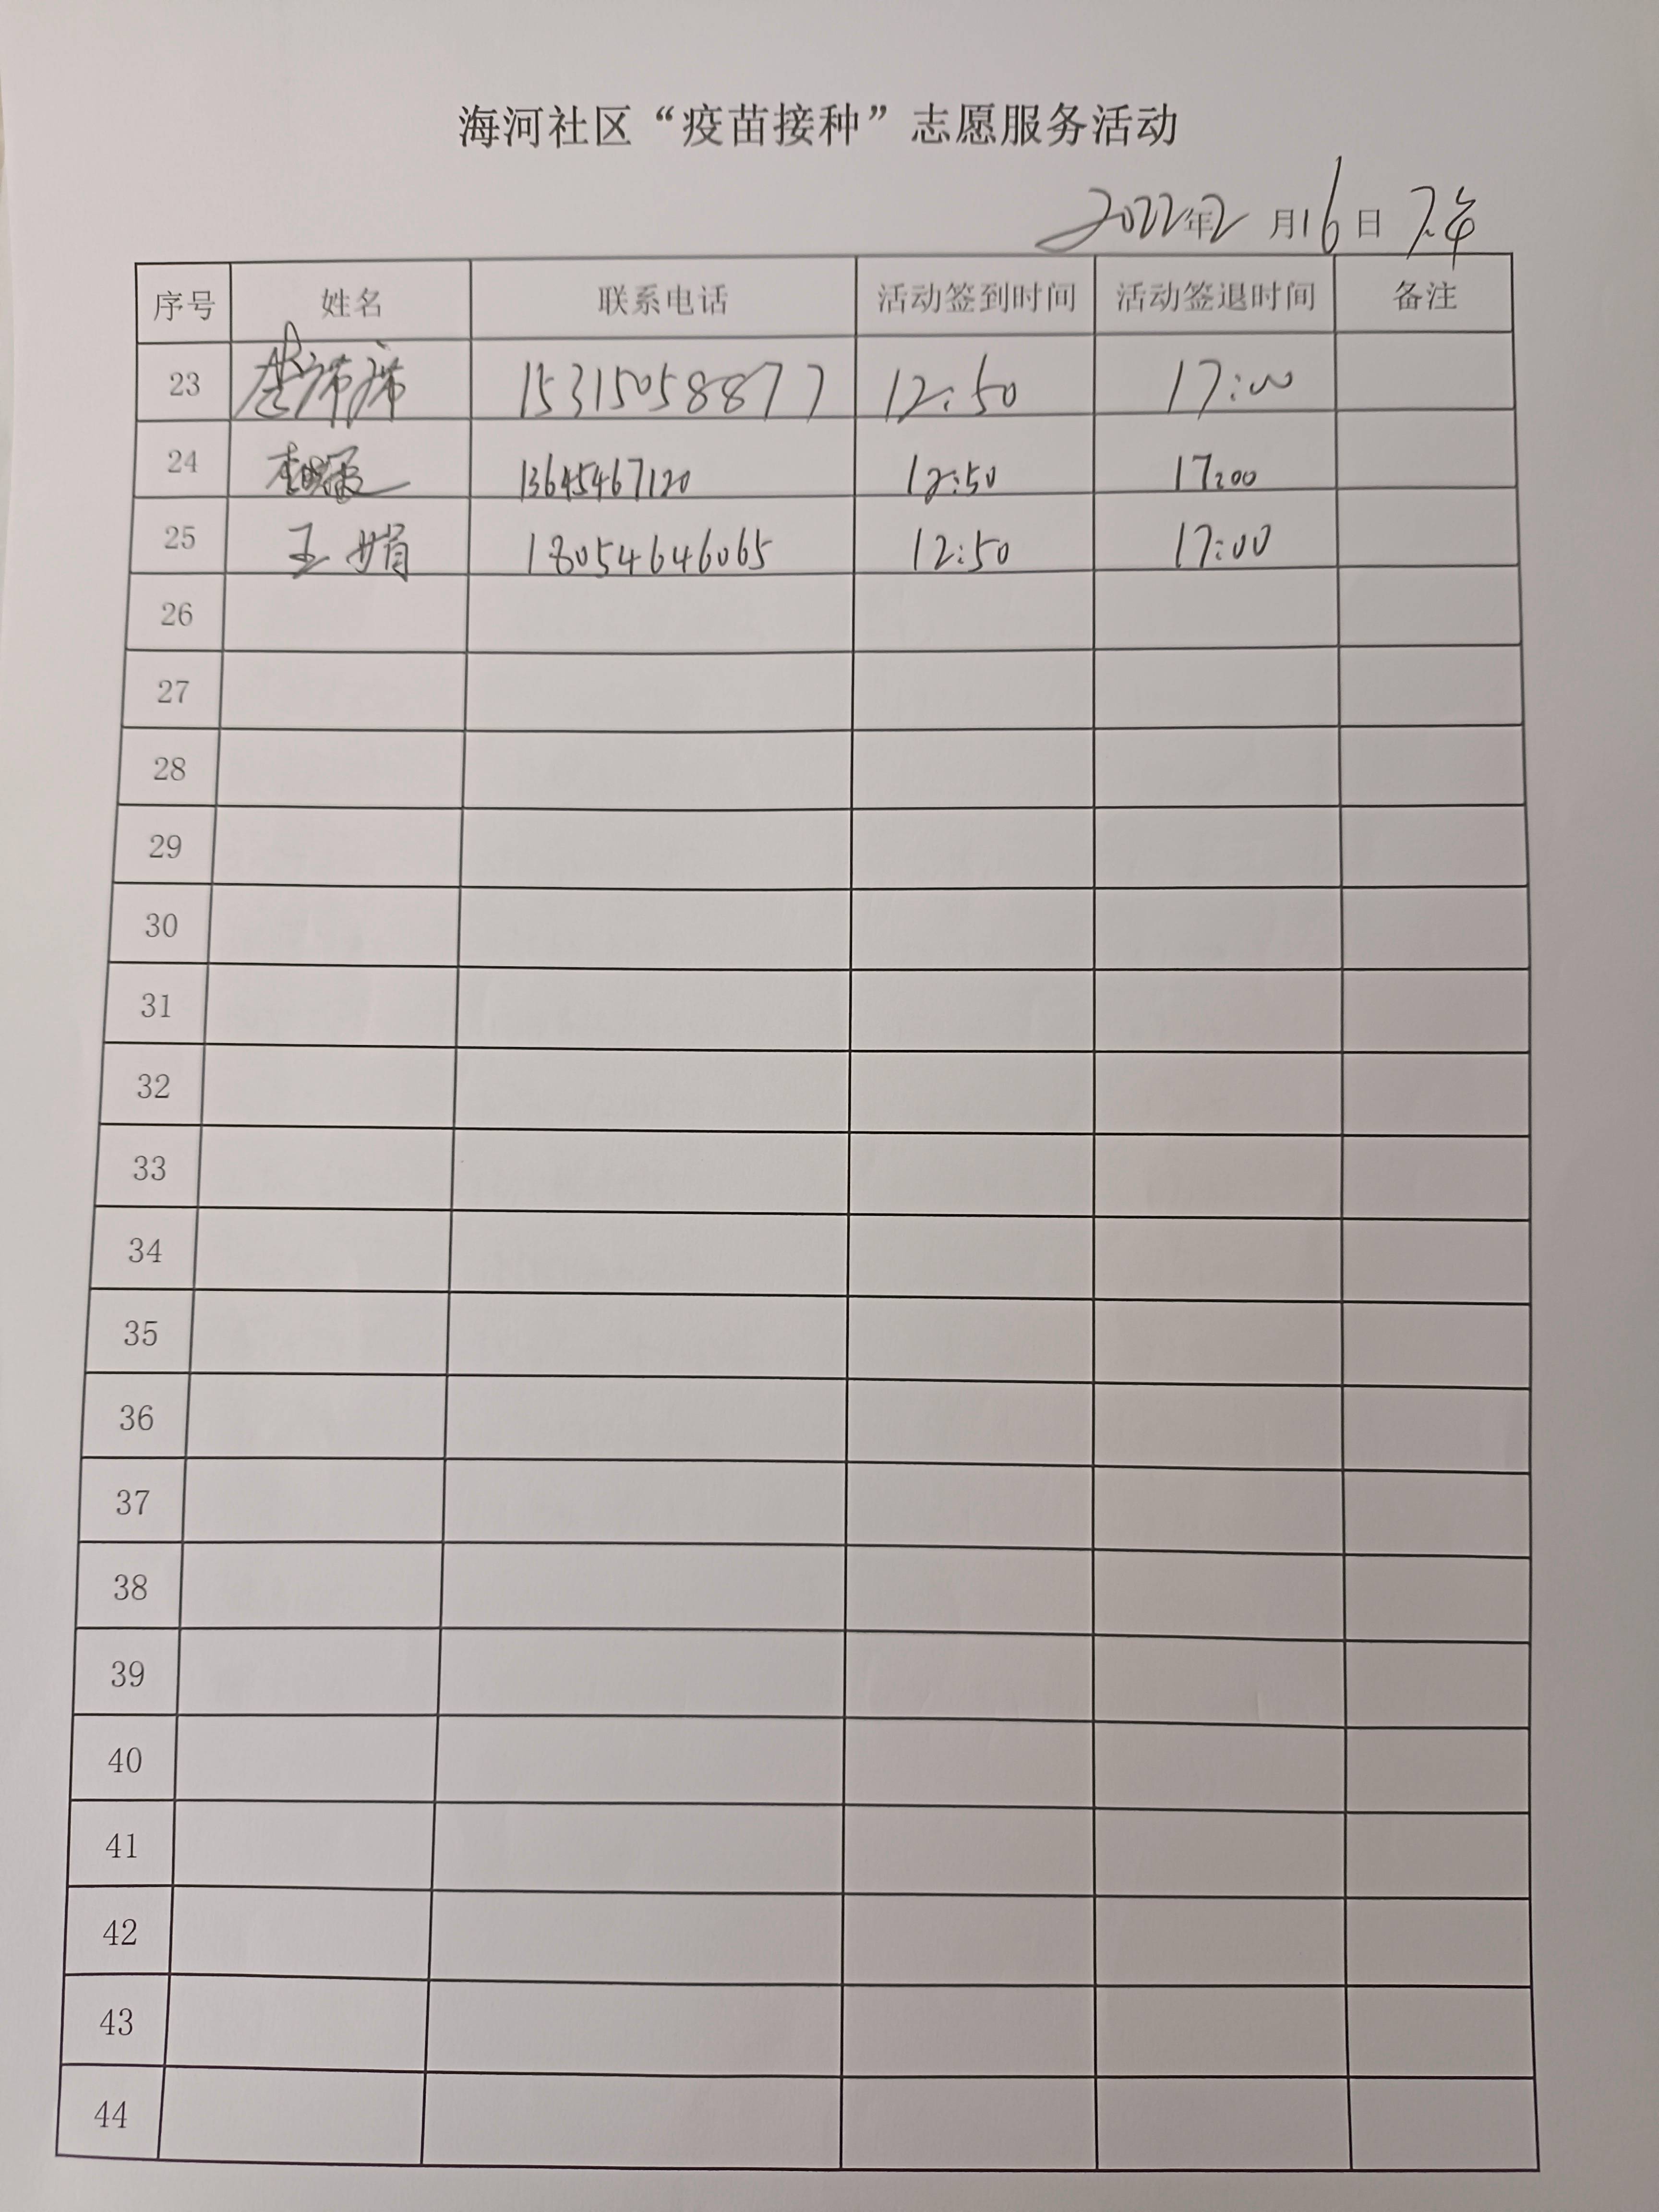 海河社区“疫苗接种”志愿服务活动
2022年2月16日 下午
序号 姓名 联系电话 活动签到时间 活动签退时间 备注
23 15315058877 12:50 17:00
24 13645467120 12:50 17:00
25 王娟 18054646065 12:50 17:00
26
27
28
29
30
31
32
33
34
35
36
37
38
39
40
41
42
43
44